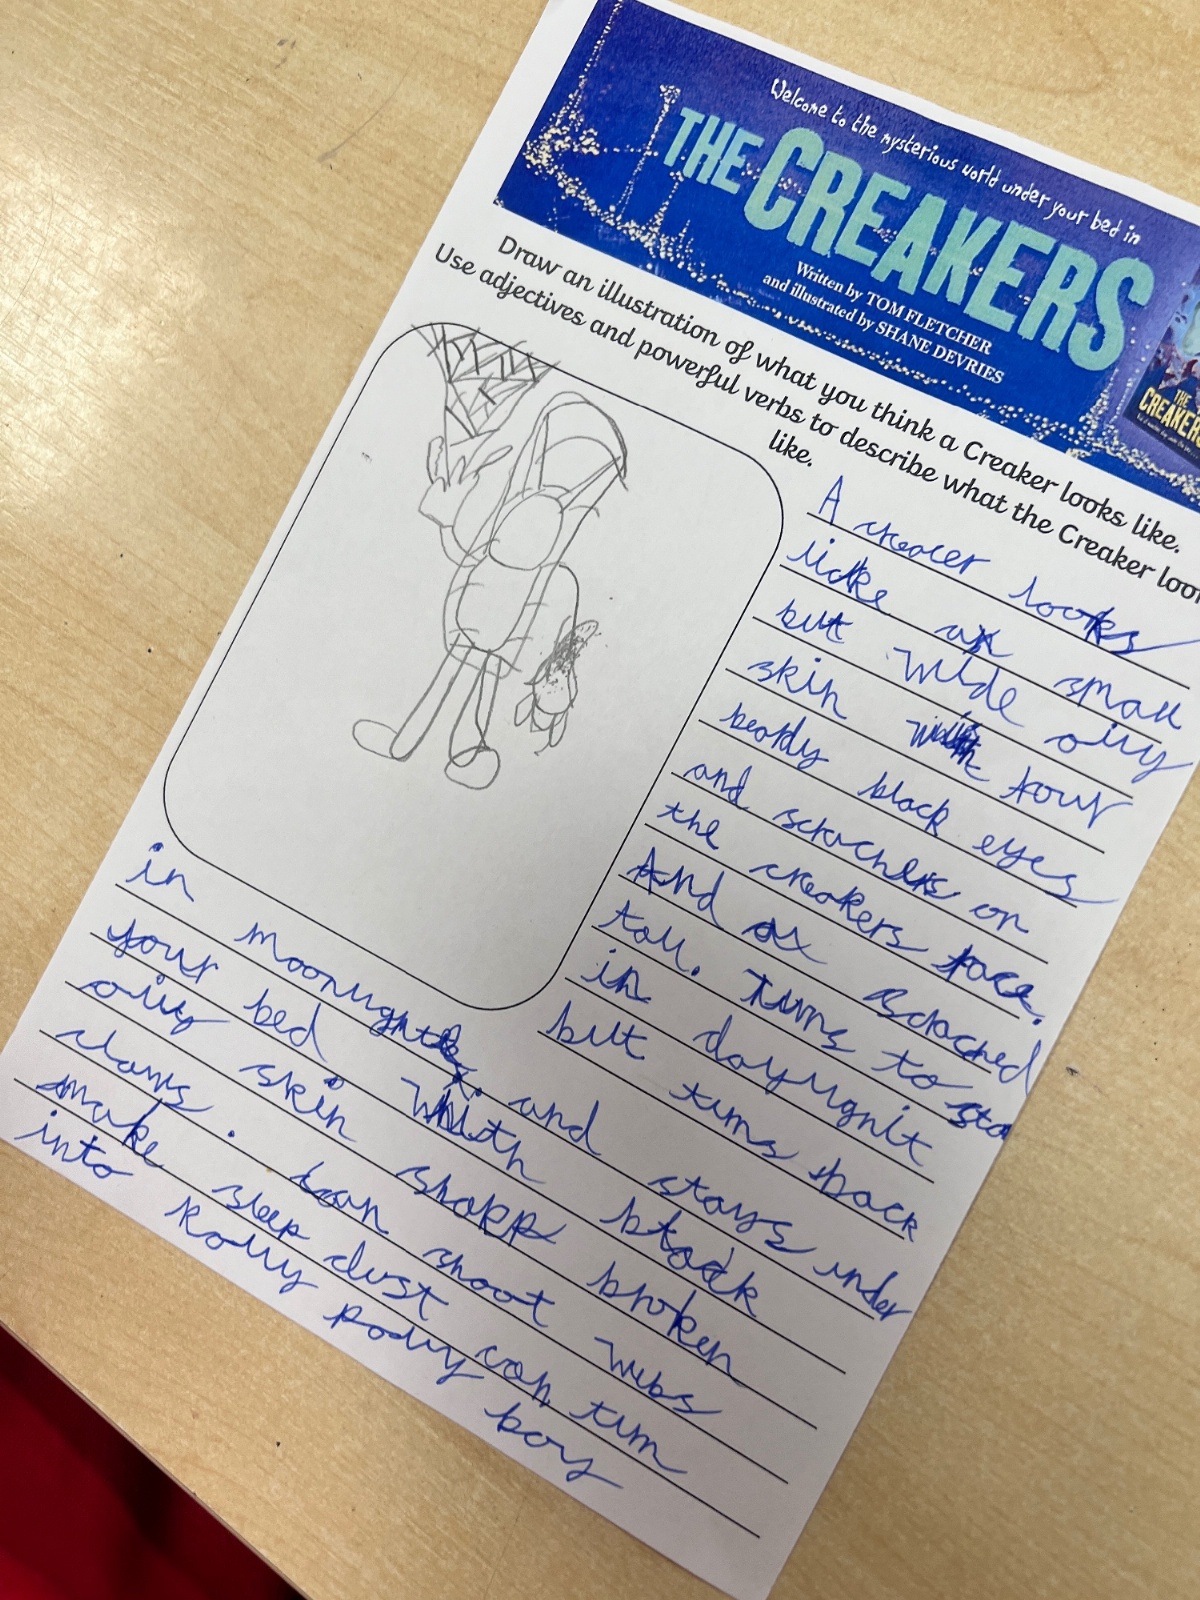 Welcome to the mysterious world under your bed in
THE CREAKERS
Written by TOM FLETCHER
and illustrated by SHANE DEVRIES
THE
CREAKERS
Draw an illustration of what you think a Creaker looks like.
Use adjectives and powerful verbs to describe what the Creaker loo
like.
A creacer looks
like a small
but wide oily
skin with four
beady black eyes
and scrachers on
the creakers face.
And a scached
tall. Turns to sto
in daylighit
but turns back
in moonlight. and stays under
your bed with black
oily skin sharp broken
claws. can shoot webs
make sleep dust can turn
into Rolly polly boly